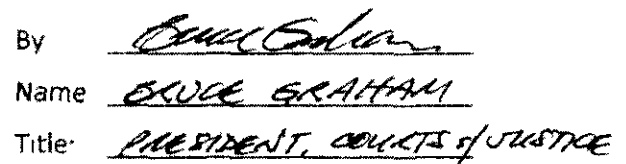 By Bruce Graham
Name BRUCE GRAHAM
Title: PRESIDENT, COURTS & JUSTICE